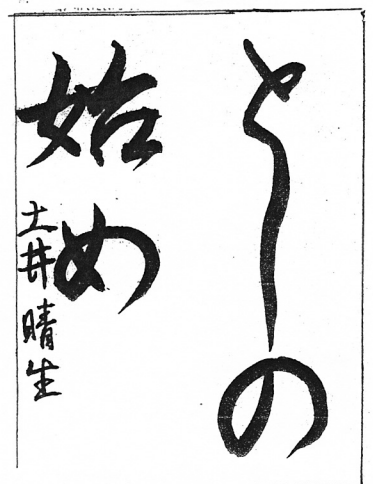 としの
始め
土井晴生